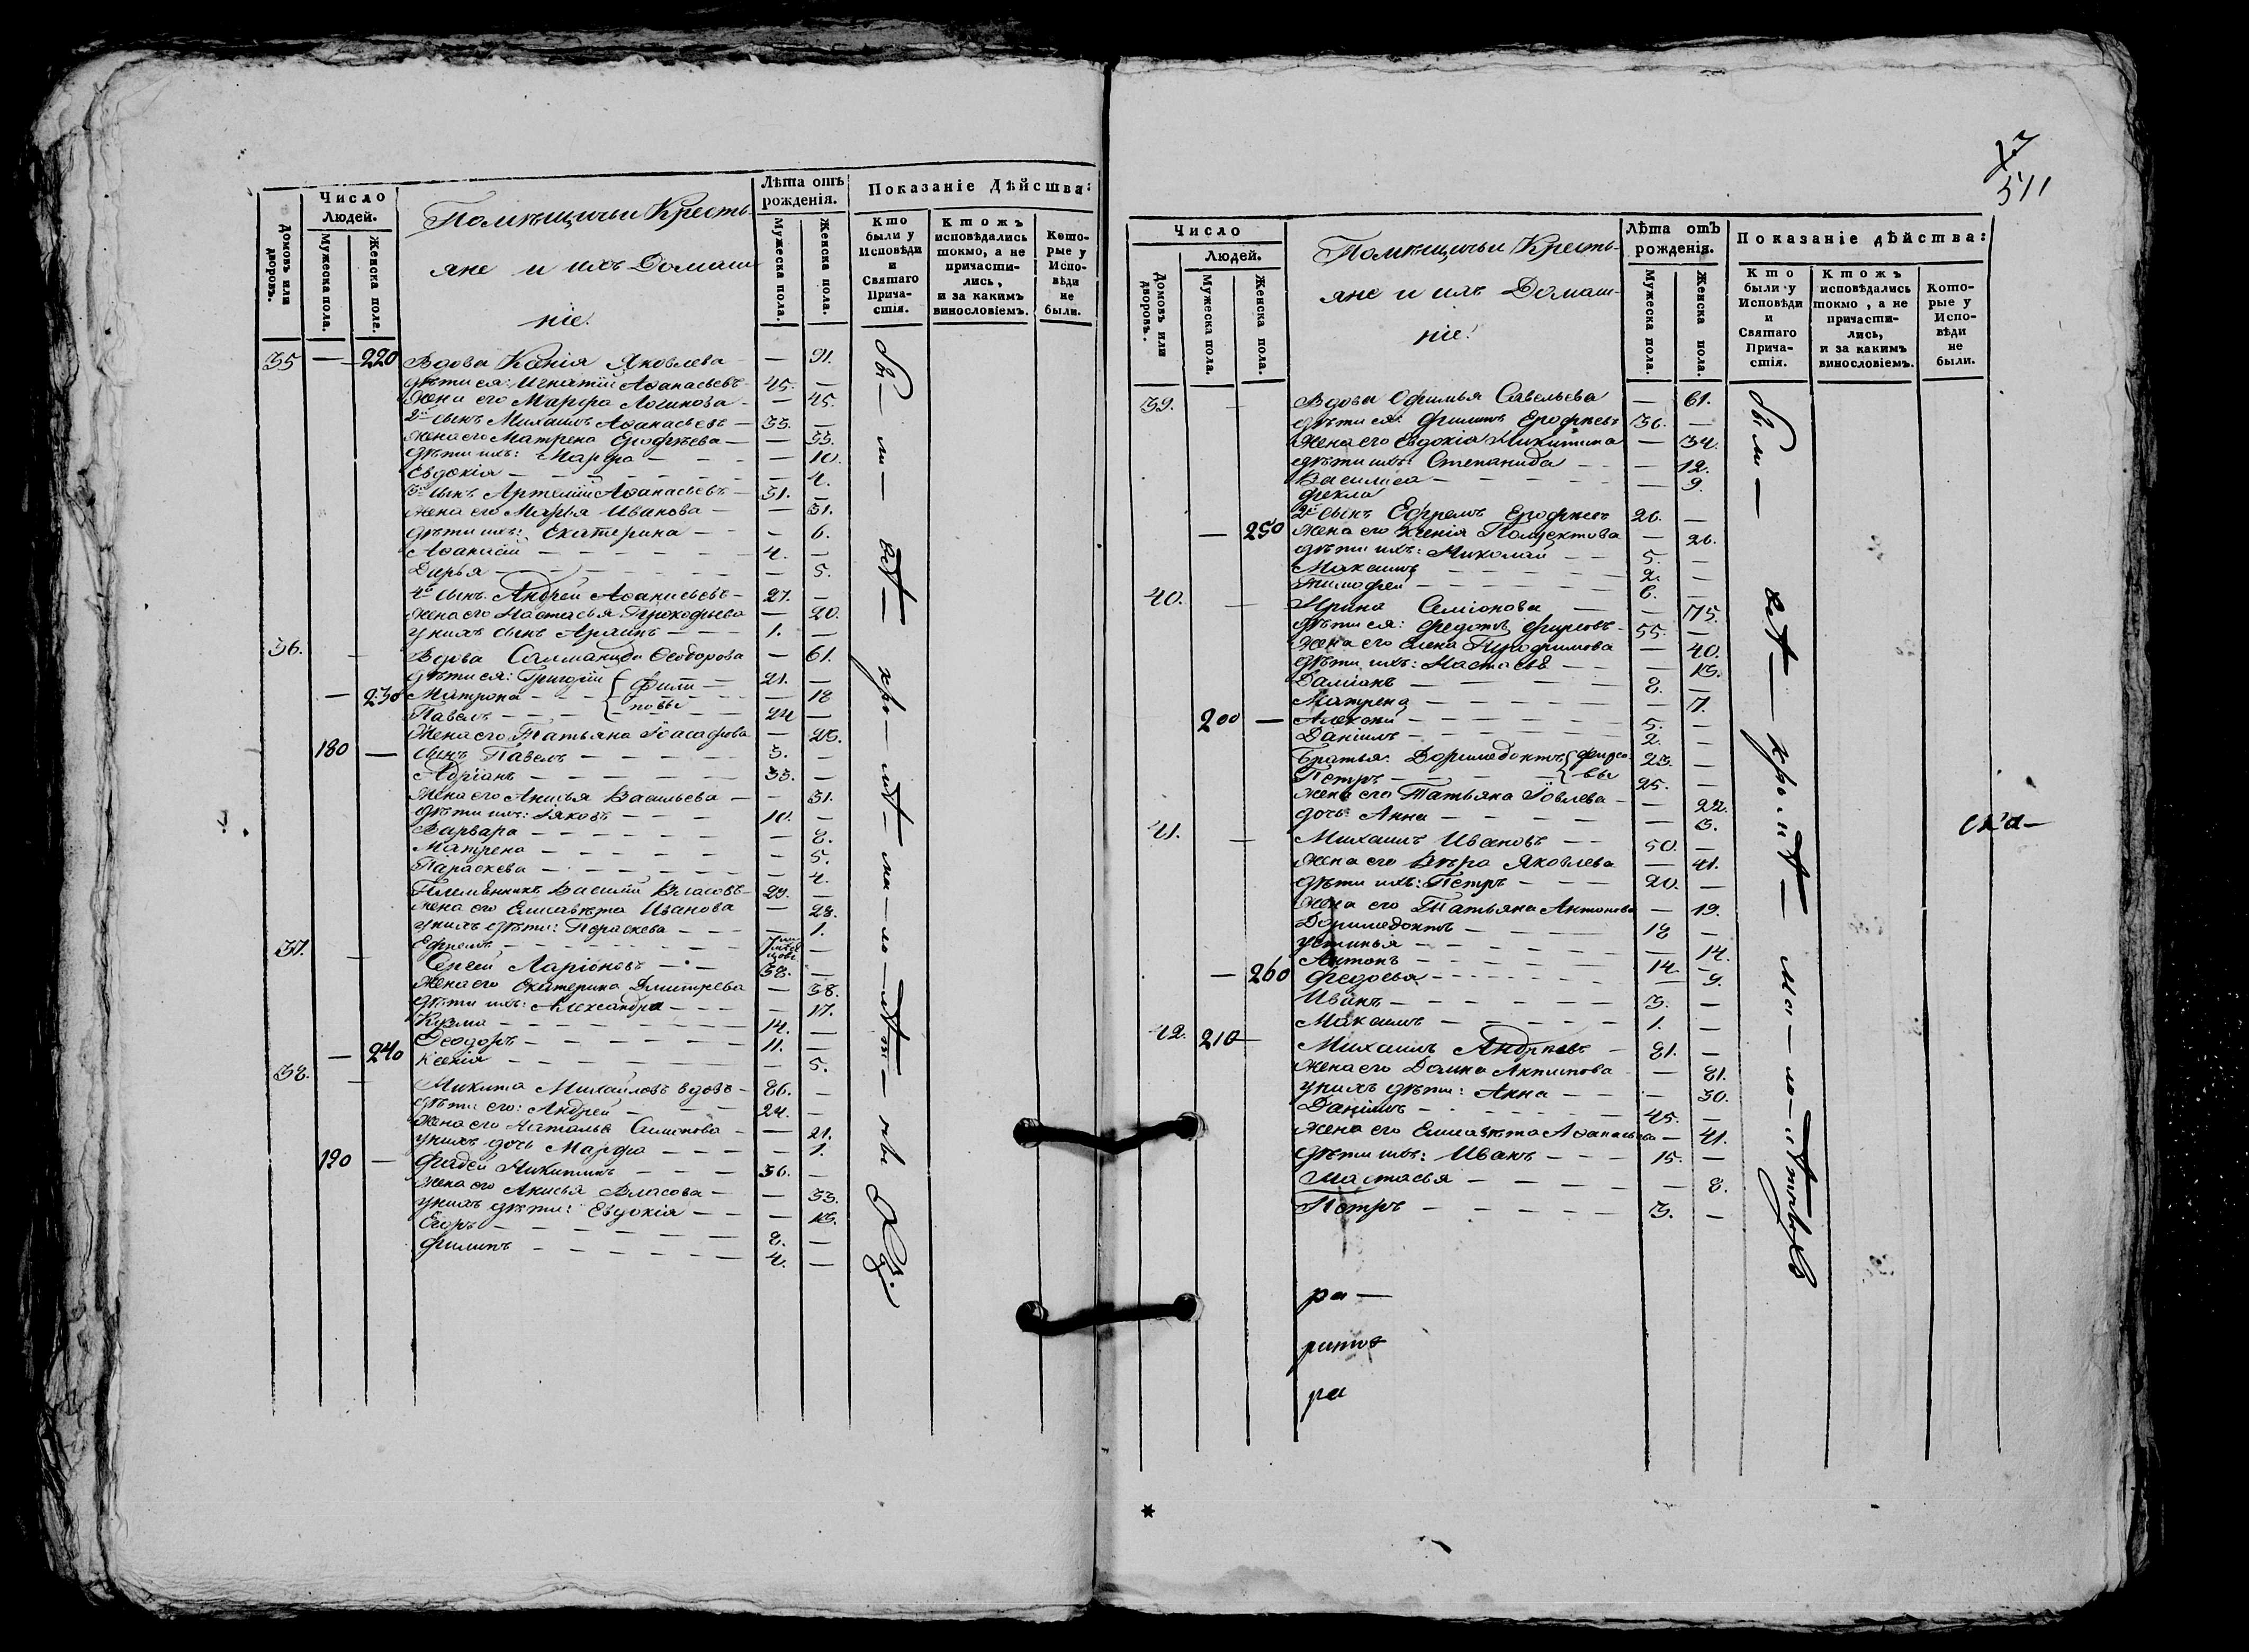 Число
Людей.
Домовъ или дворовъ.
Мужеска пола.
Женска пола.
Помѣщичьи Кресть-
яне и ихъ Домаш-
ніе.
Лѣта отъ рожденія.
Мужеска пола.
Женска пола.
Показаніе Дѣйства:
Кто были у Исповѣди и Святаго Причастія.
Ктожъ исповѣдались токмо, а не причастились, и за какимъ винословіемъ.
Которые у Исповѣди не были.
35 — 220 Вдова Ксенія Яковлева — 91.
дѣти ея: Игнатій Аѳанасьевъ 45. —
Жена его Марѳа Логинова — 45.
2й сынъ Михаилъ Аѳанасьевъ — 33. —
Жена его Матрена Ерофѣева — — 33.
дѣти ихъ: Марфа — — 10.
Евдокія — — 4.
3й сынъ Артемій Аѳанасьевъ — 31. —
Жена его Марья Иванова — — 31.
дѣти ихъ: Екатерина — — 6.
Аѳанасій — 4. —
Дарья — — 5.
4й сынъ Андрей Аѳанасьевъ — 27. —
Жена его Настасья Прокофьева — 20.
у нихъ сынъ — 1. —
36. Вдова Ѳеодорова — 61.
дѣти ея: Григорій Фили- 21. —
— 230 Матрона — повы — 18
Павелъ — 24 —
Жена его Татьяна — 23.
180 — сынъ Павелъ — 3. —
Адріанъ — 33. —
Жена его Анисья Васильева — — 31.
дѣти ихъ: Іяковъ — 10. —
Варвара — — 8.
Матрена — — 5.
Параскева — — 4.
Племянникъ Василій Власовъ — 29. —
Жена его Елисавета Иванова — 28.
у нихъ дѣти: Параскева — — 1.
Ефремъ — 7 —
37. Сергей Ларіоновъ — 38. —
Жена его Екатерина Дмитрева — 38.
дѣти ихъ: Александра — — 17.
Кузма — 14. —
Ѳеодоръ — 11. —
— 240 Ксенія — — 5.
38. Микита Михайловъ вдовъ — 86. —
дѣти его: Андрей — 24. —
Жена его Наталья — 21.
у нихъ дочь Марфа — — 1.
190 — Фадей Никитинъ — 36. —
Жена его Анисья Власова — — 33.
у нихъ дѣти: Евдокія — — 13.
Егоръ — 8. —
Филипъ — 4. —
511
Число
Людей.
Домовъ или дворовъ.
Мужеска пола.
Женска пола.
Помѣщичьи Кресть-
яне и ихъ Домаш-
ніе.
Лѣта отъ рожденія.
Мужеска пола.
Женска пола.
Показаніе дѣйства:
Кто были у Исповѣди и Святаго Причастія.
Ктожъ исповѣдались токмо, а не причастились, и за какимъ винословіемъ.
Которые у Исповѣди не были.
39. Вдова Офимья Савельева — 61.
дѣти ея: Филипъ Ерофѣевъ 36. —
Жена его Евдокія Микитина — 34.
дѣти ихъ: Степанида — — 12.
Василиса — — 9.
Фекла
2й сынъ Ефремъ Ерофѣевъ 26. —
— 250 Жена его Ксенія — 26.
дѣти ихъ: Николай — 5. —
Максимъ — 2. —
Тимофей — 6. —
40. Ирина Семіонова — 75.
дѣти ея: Федотъ 55. —
Жена его Елена Трофимова — 40.
дѣти ихъ: Настасья — — 13.
Даміанъ — 8. —
Матрена — — 7.
200 — Алексѣй — 5. —
Даніилъ — 2. —
Братья: Доримедонтъ 23. —
Петръ — 25. —
Жена его Татьяна Іовлева — — 22.
дочь Анна — — 3.
41. Михаилъ Ивановъ — 50. —
Жена его Вѣра Яковлева — 41.
дѣти ихъ: Петръ — 20. —
Жена его Татьяна Антонова — 19.
Доримедонтъ — 18 —
Устинья — — 14.
Антонъ — 14. —
— 260 Федосья — — 9.
Иванъ — 3. —
Максимъ — 1. —
42. 210 — Михаилъ Андрѣевъ — 81. —
Жена его Домна Антипова — 81.
у нихъ дѣти: Анна — — 30.
Даніилъ — 45. —
Жена его Елисавѣта Аѳанасьева — 41.
дѣти ихъ: Иванъ — 15. —
Настасья — — 8.
Петръ — 3. —
ра —
ра
*